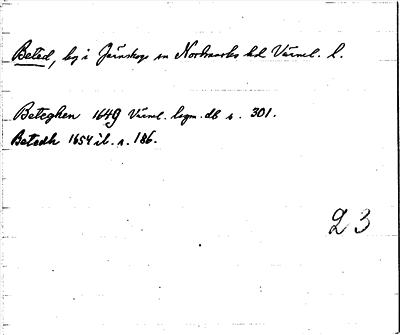 Beted, by i Järnskogs sn Nordmarks hd Värml. l.
Beteghen 1649 Värml. lagm. db s. 301.
Betedh 1654 ib. s. 186.
23